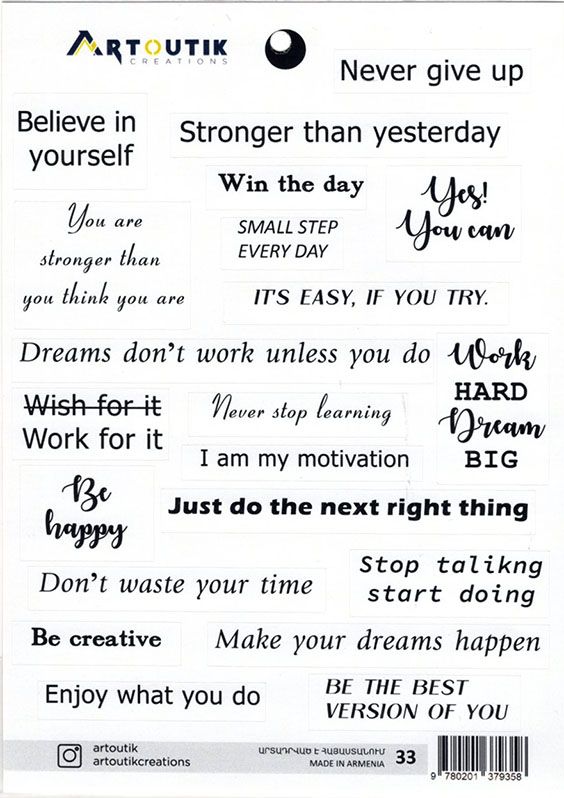 ARTOUTIK
CREATIONS
Never give up
Believe in
yourself
Stronger than yesterday
Win the day
Yes!
You can
You are
stronger than
you think you are
SMALL STEP
EVERY DAY
IT'S EASY, IF YOU TRY.
Dreams don't work unless you do
Work
HARD
Dream
BIG
Wish for it
Work for it
Never stop learning
I am my motivation
Be
happy
Just do the next right thing
Don't waste your time
Stop talikng
start doing
Be creative
Make your dreams happen
Enjoy what you do
BE THE BEST
VERSION OF YOU
artoutik
artoutikcreations
ԱՐՏԱԴՐՎԱԾ Է ՀԱՅԱՍՏԱՆՈՒՄ
MADE IN ARMENIA
33
9 780201 379358